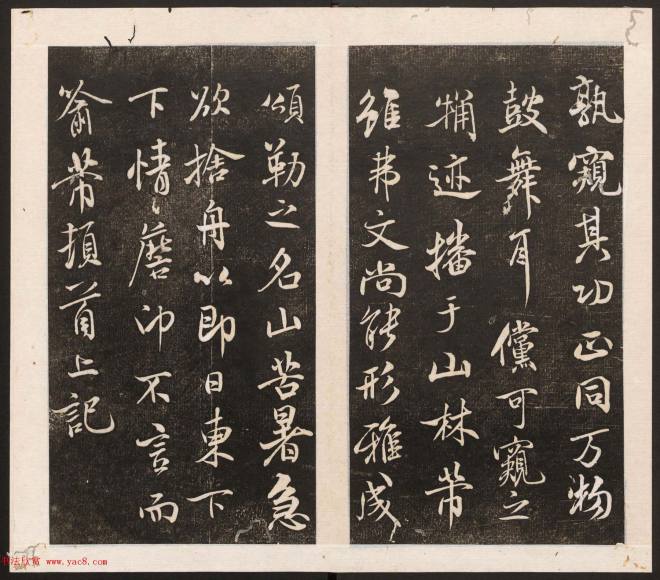 孰窺其功正同万物
鼓舞耳儻可窺之
捕迹播于山林芾
雖弗文尚能形雅成
頌勒之名山苦暑急
欲捨舟以即日東下
下情瞻卬不言而
喻芾頓首上記
书法欣赏 www.yac8.com